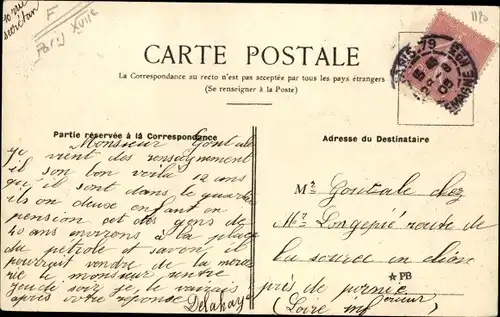 10 rue
secrétan
F
Paris XVIIe
1120
CARTE POSTALE
La Correspondance au recto n'est pas acceptée par tous les pays étrangers
(Se renseigner à la Poste)
PARIS-79
Partie réservée à la Correspondance
Adresse du Destinataire
Monsieur
je vient des rensegnement
il son bon voila 12 ans
qu'il sont dans le quartier
ils on deuse enfant en
pension cet des gens de
40 ans environs a la place
du pétrole et savon il
pourrait vendre de la
le monsieur rentre
jeudi soir je
après votre réponse Delahaye
Mr chez
Mr Longepié route de
la source en
près de pornic
(Loire inferieur)
PB